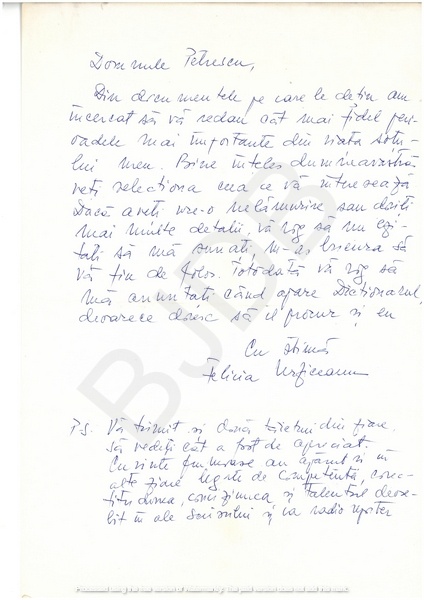 Domnule Petrescu,
Din documentele pe care le dețin am
încercat să vă redau cât mai fidel peri-
oadele mai importante din viața soțu-
lui meu. Bine înțeles dumneavoastră
veți selecționa ceea ce vă interesează
Dacă aveți vre-o nelămurire sau doriți
mai multe detalii, vă rog să nu ezi-
tați să mă sunați, m-aș bucura să
vă fiu de folos. Totodată vă rog să
mă anunțați când apare Dicționarul,
deoarece doresc să il procur și eu
Cu stimă
Felicia Urziceanu
P.S. Vă trimit și două tăieturi din ziare
să vedeți cât a fost de apreciat.
Cuvinte frumoase au apărut și în
alte ziare legate de competența, corec-
titudinea, conștiința și talentul deose-
bit în ale scrisului și ca radio reporter
BJDB